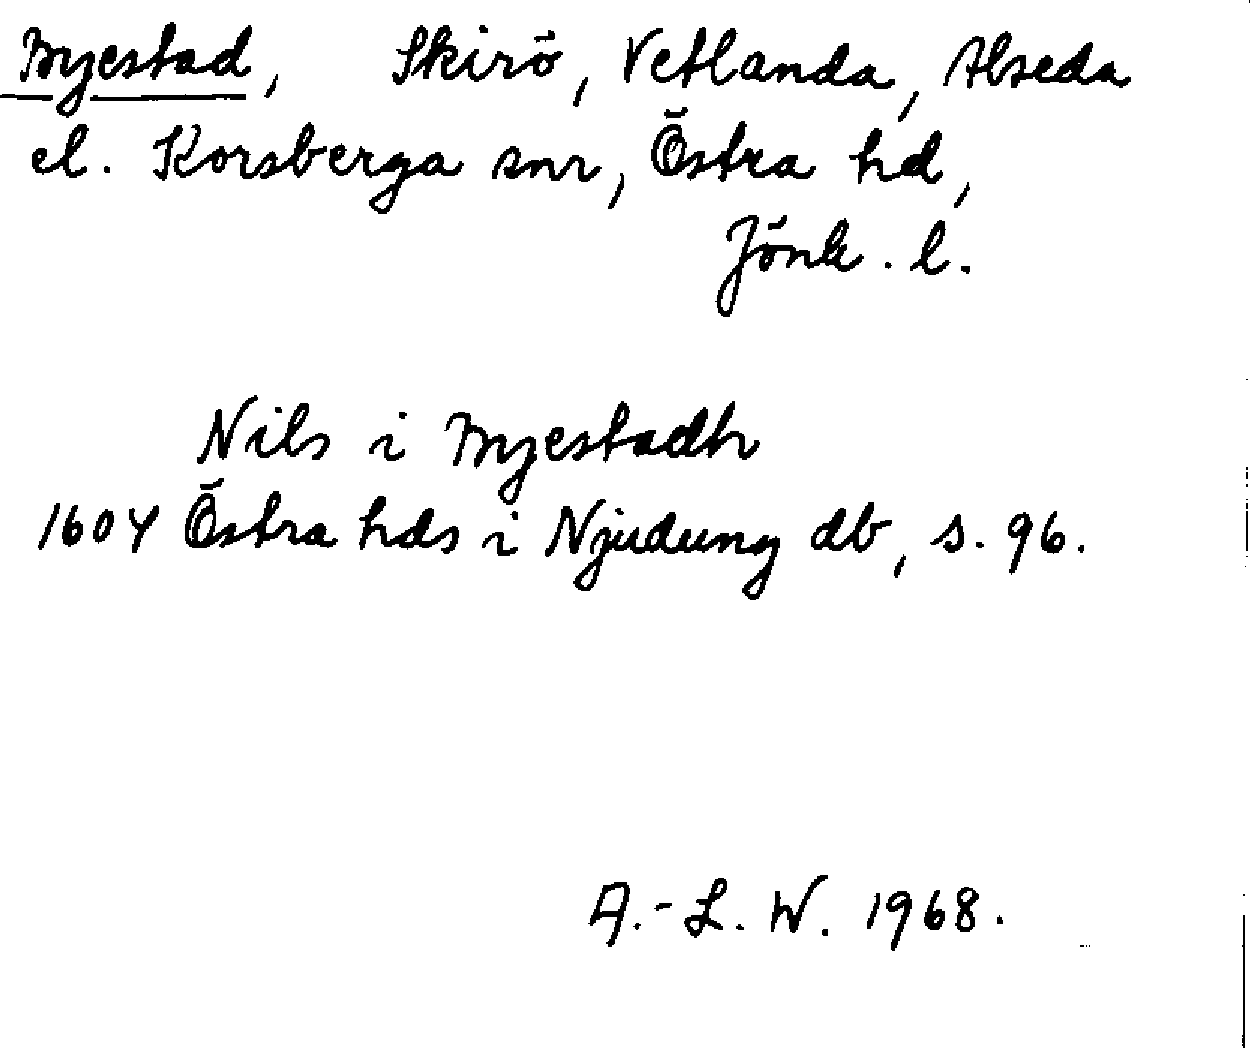 Byestad, Skirö, Vetlanda, Alseda
el. Korsberga snr, Östra hd,
Jönk. l.
Nils i Byestadh
1604 Östra hds i Njudung db, s. 96.
A.-L. W. 1968.